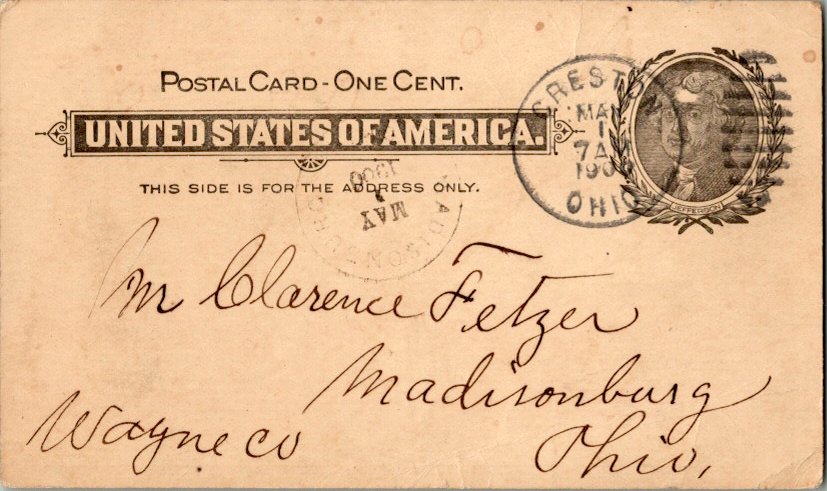 POSTAL CARD - ONE CENT.
UNITED STATES OF AMERICA.
THIS SIDE IS FOR THE ADDRESS ONLY.
CRESTON
MAY
1
7 A
190
OHIO
JEFFERSON
MAY
1900
Mr Clarence Fetzer
Madisonburg
Wayne co
Ohio,